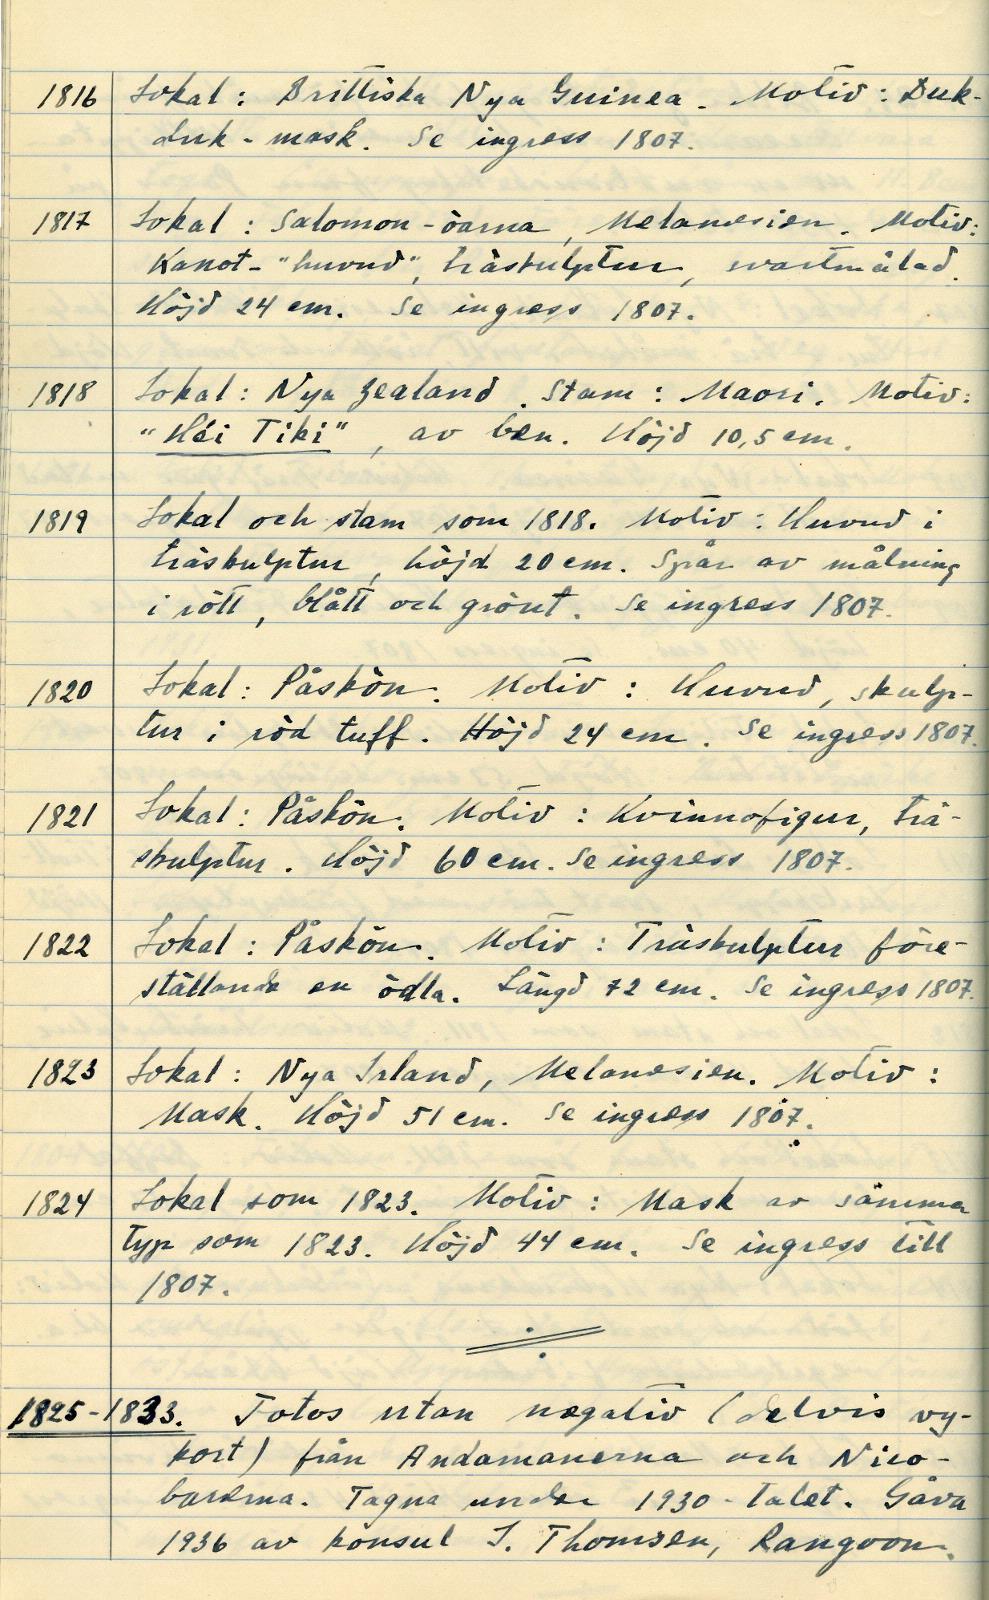 1816 Lokal: Brittiska Nya Guinea. Motiv: Duk-
duk-mask. Se ingress 1807.
1817 Lokal: Salomon-öarna, Melanesien. Motiv:
Kanot-"huvud", träskulptur, svartmålad.
Höjd 24 cm. Se ingress 1807.
1818 Lokal: Nya Zealand. Stam: Maori. Motiv:
"Héi Tiki", av ben. Höjd 10,5 cm.
1819 Lokal och stam som 1818. Motiv: Huvud i
träskulptur, höjd 20 cm. Spår av målning
i rött, blått och grönt. Se ingress 1807.
1820 Lokal: Påskön. Motiv: Huvud, skulp-
tur i röd tuff. Höjd 24 cm. Se ingress 1807.
1821 Lokal: Påskön. Motiv: Kvinnofigur, trä-
skulptur. Höjd 60 cm. Se ingress 1807.
1822 Lokal: Påskön. Motiv: Träskulptur före-
ställande en ödla. Längd 72 cm. Se ingress 1807.
1823 Lokal: Nya Irland, Melanesien. Motiv:
Mask. Höjd 51 cm. Se ingress 1807.
1824 Lokal som 1823. Motiv: Mask av samma
typ som 1823. Höjd 44 cm. Se ingress till
1807.
1825-1833. Fotos utan negativ (delvis vy-
kort) från Andamanerna och Nico-
barerna. Tagna under 1930-talet. Gåva
1936 av konsul I. Thomsen, Rangoon.